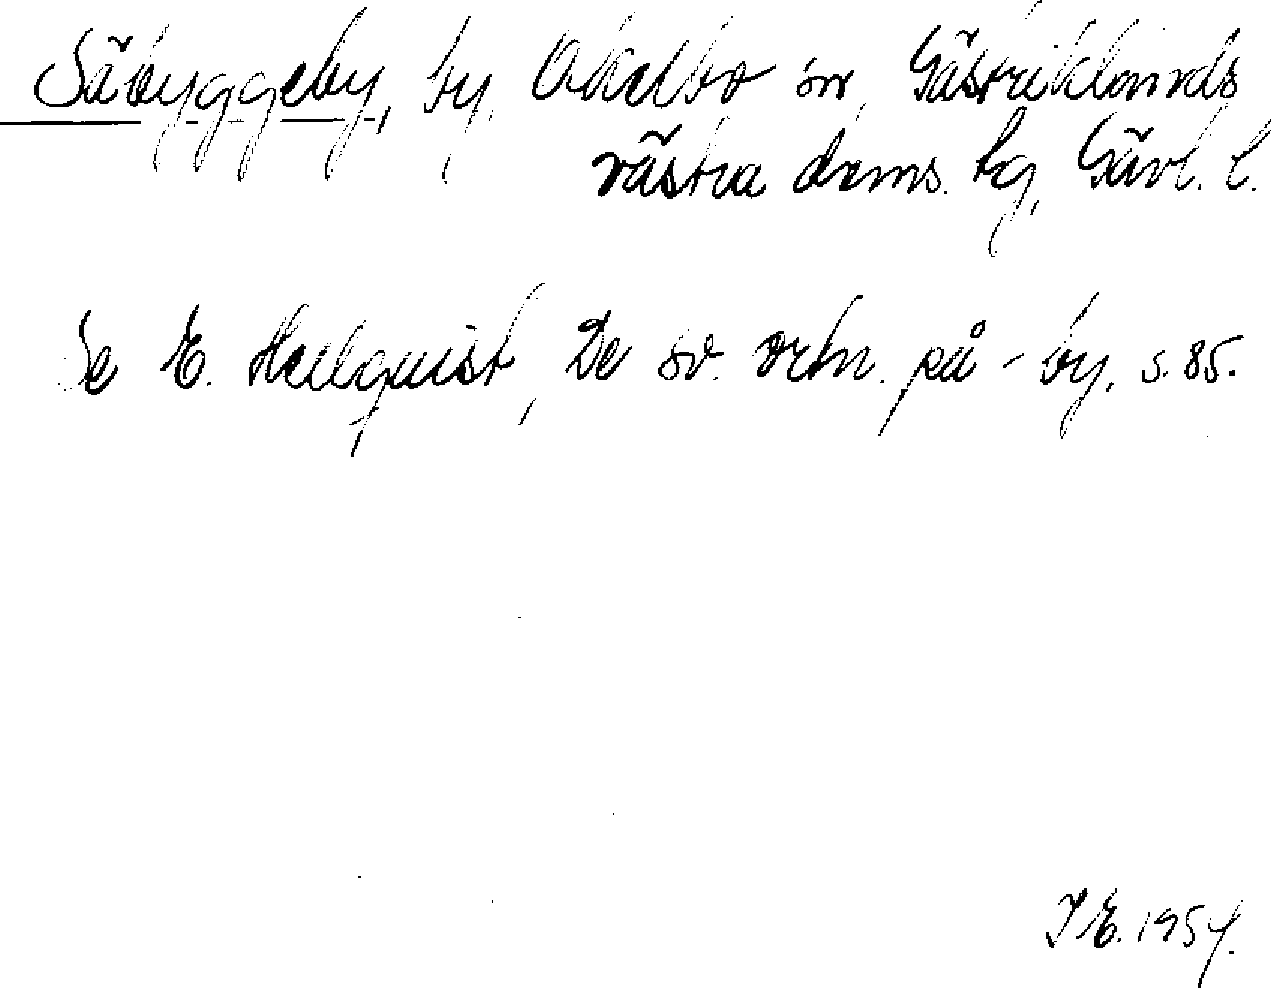 Säbyggeby, by, Ockelbo sn, Gästriklands
västra doms. tg, Gävl. l.
Se E. Hellquist, De sv. ortn. på -by, s. 85.
I E. 1954.